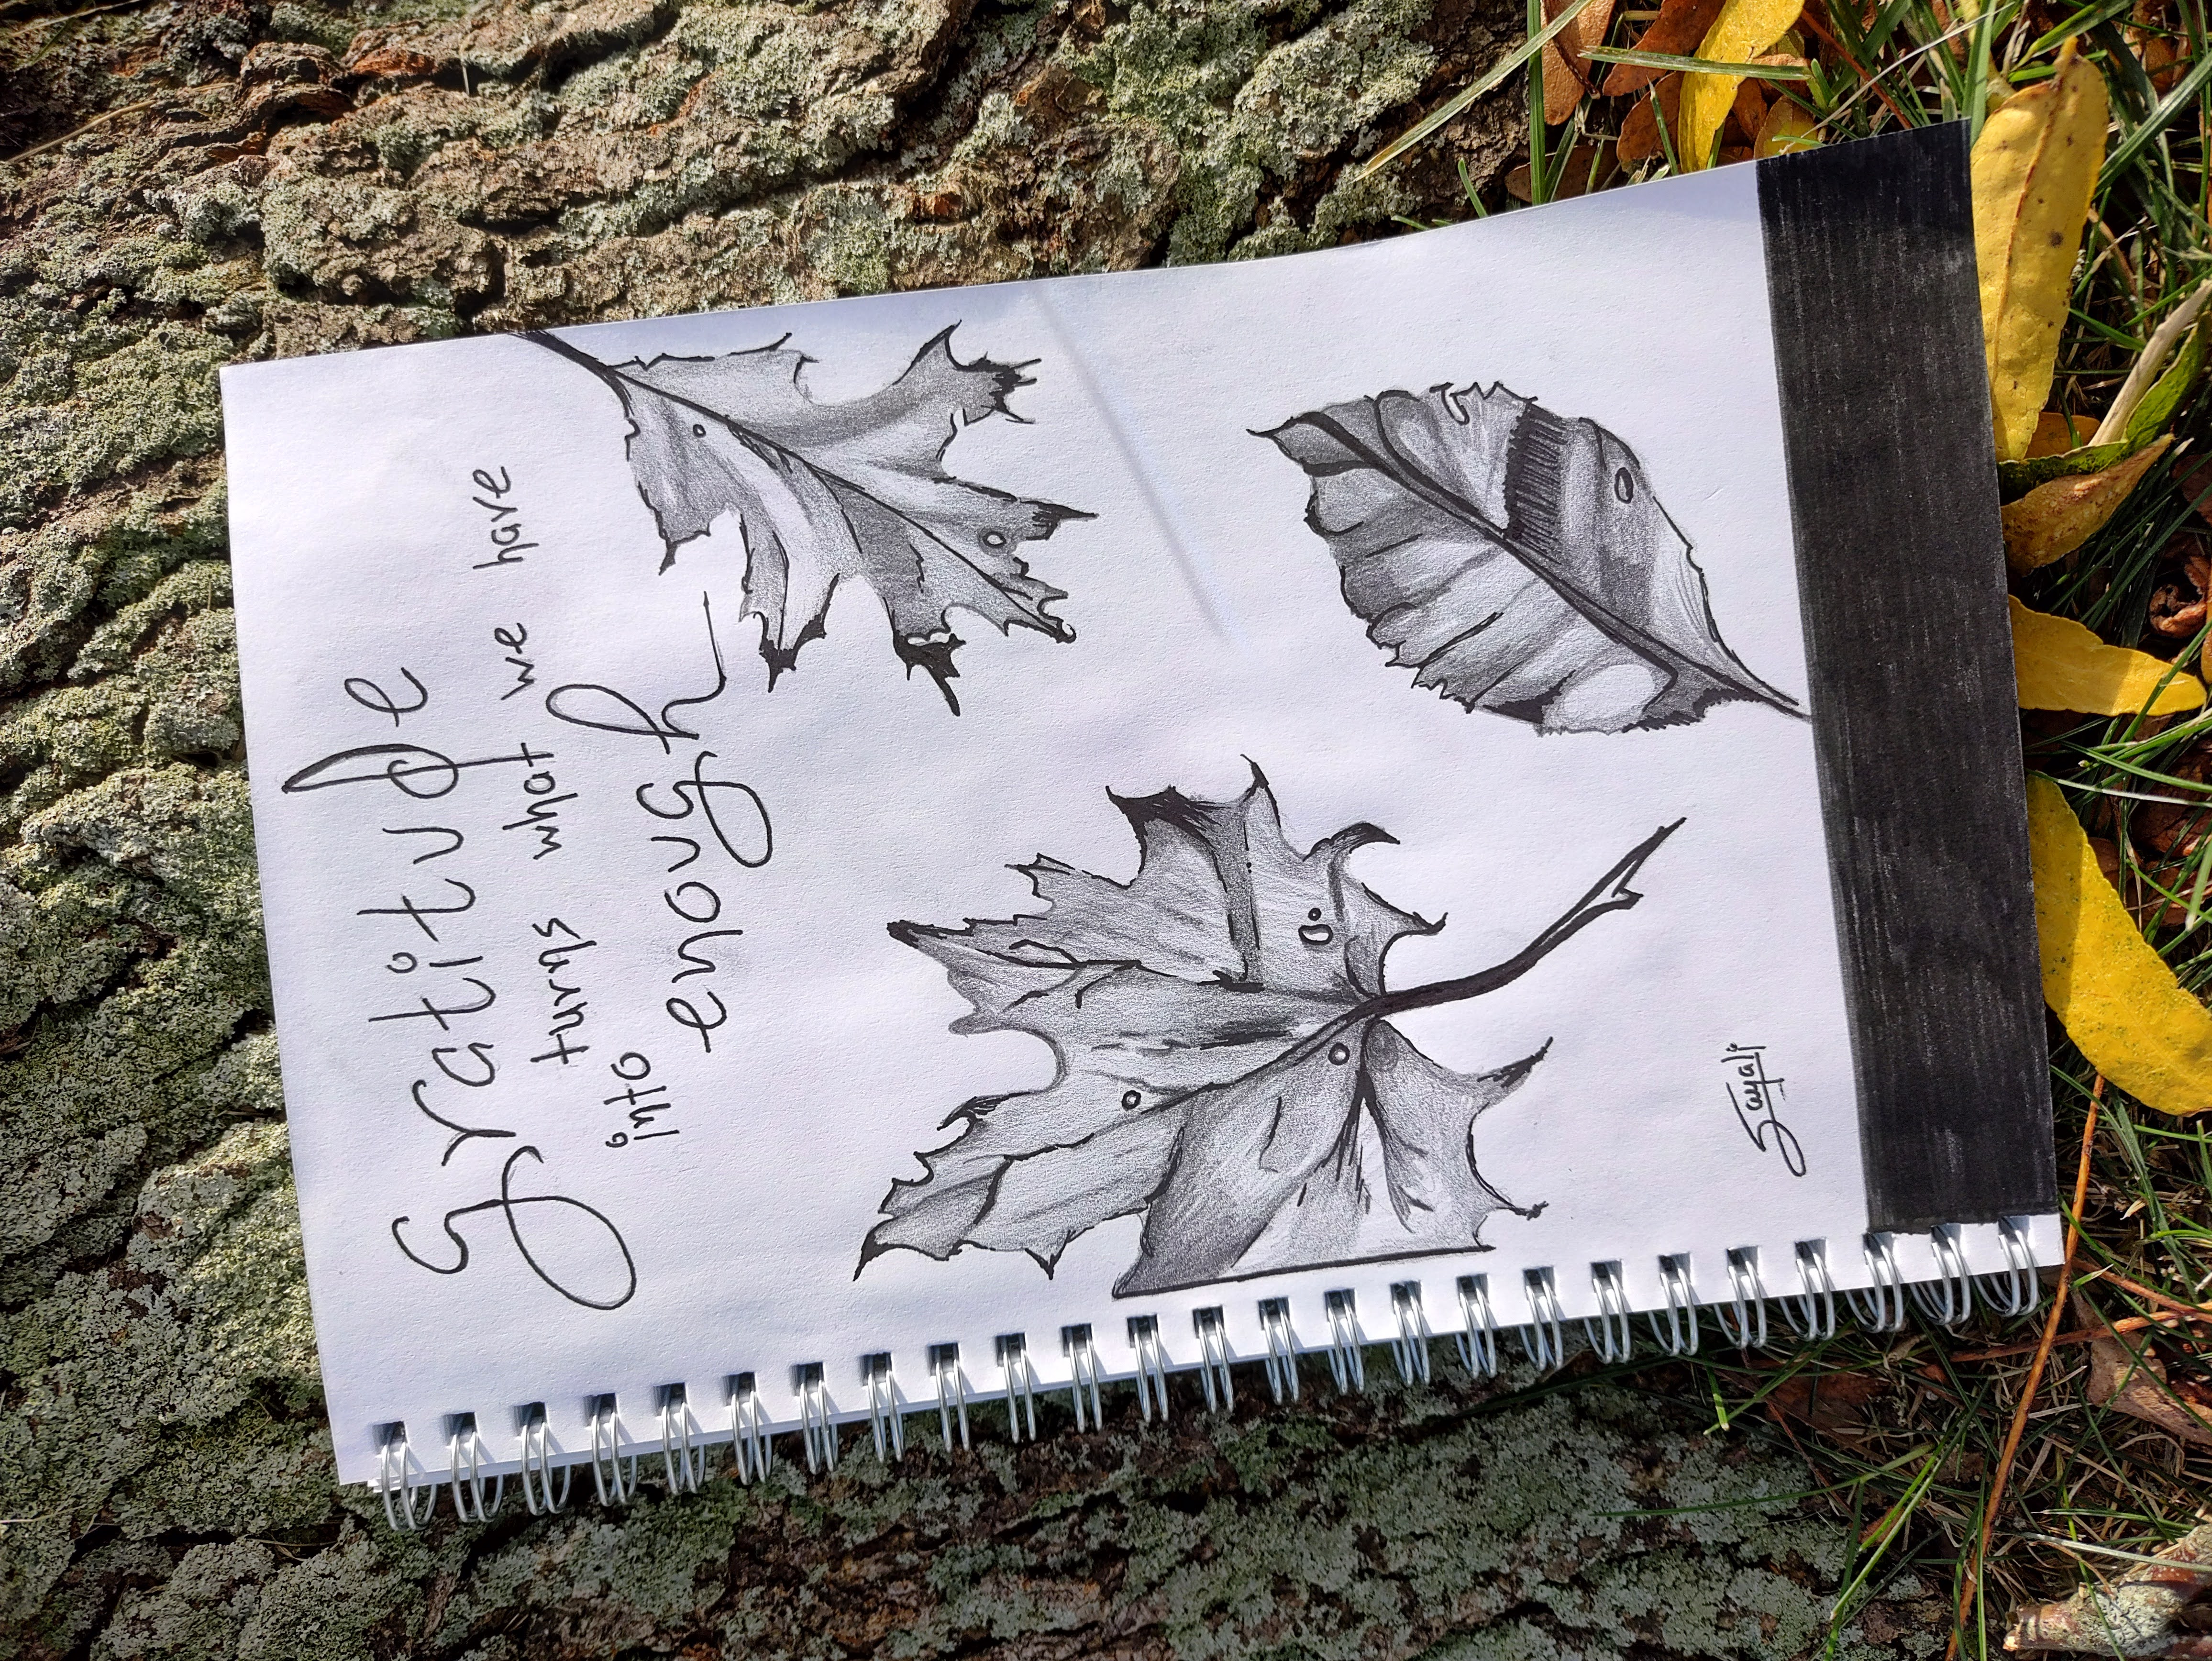 Gratitude
turns what we have
into
enough
Sayali